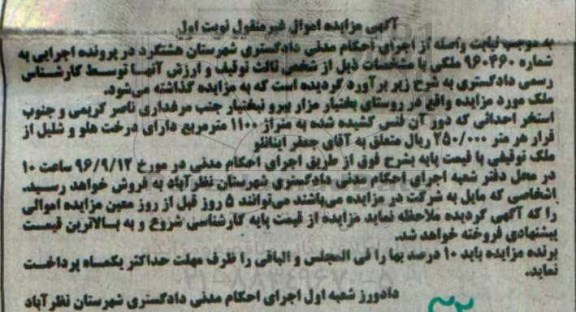 آگهی مزایده اموال غیرمنقول نوبت اول
به موجب نیابت واصله از اجرای احکام مدنی دادگستری شهرستان هشتگرد در پرونده اجرایی به
شماره ۹۶۰۳۶۰ ملکی با مشخصات ذیل از شخص ثالث توقیف و ارزش آنها توسط کارشناس
رسمی دادگستری به شرح زیر برآورد گردیده است که به مزایده گذاشته می‌شود.
ملک مورد مزایده واقع در روستای بختیار مزار بیرو نبختیار جنب مرغداری ناصر کریمی و جنوب
استخر احداثی که دور آن فنس کشیده شده به متراژ ۱۱۰۰ مترمربع دارای درخت هلو و شلیل از
قرار هر متر ۲۵۰/۰۰۰ ریال متعلق به آقای جعفر اینانلو
ملک توقیفی با قیمت پایه بشرح فوق از طریق اجرای احکام مدنی در مورخ ۹۶/۹/۱۲ ساعت ۱۰
در محل دفتر شعبه اجرای احکام مدنی دادگستری شهرستان نظرآباد به فروش خواهد رسید.
اشخاصی که مایل به شرکت در مزایده می‌باشند می‌توانند ۵ روز قبل از روز معین مزایده اموالی
را که آگهی گردیده ملاحظه نماید مزایده از قیمت پایه کارشناسی شروع و به بالاترین قیمت
پیشنهادی فروخته خواهد شد.
برنده مزایده باید ۱۰ درصد بها را فی المجلس و الباقی را ظرف مهلت حداکثر یکماه پرداخت
نماید.
دادورز شعبه اول اجرای احکام مدنی دادگستری شهرستان نظرآباد